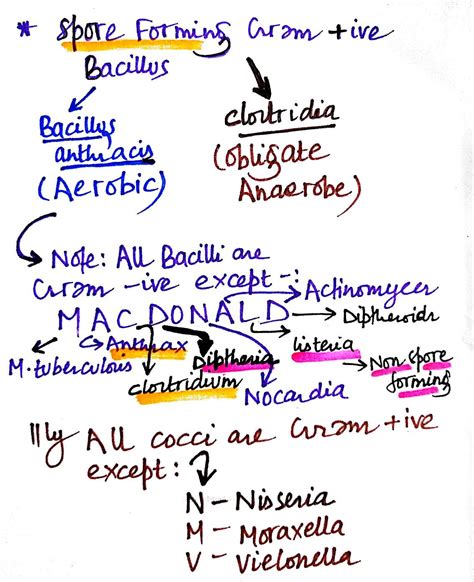 * Spore Forming Gram +ive
Bacillus
Bacillus anthracis (Aerobic)
clostridia (obligate Anaerobe)
Note: All Bacilli are
Gram -ive except -:
MACDONALD
Actinomyces
Diptheroids
Anthrax
Diptheria
listeria
M. tuberculous
clostridium
Nocardia
Non spore forming
|||ly All cocci are Gram +ive
except:
N - Nisseria
M - Moraxella
V - Vielonella